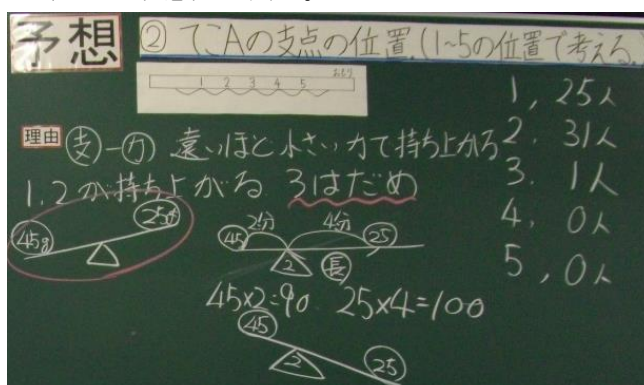 予想
② てこAの支点の位置.(1~5の位置で考える.)
1 2 3 4 5 おもり
1, 25人
2. 31人
3. 1人
4, 0人
5, 0人
理由 支-力 遠いほど小さい力で持ち上がる
1.2が持ち上がる 3はだめ
45g 25g
45 2分 4分 25
2 長
45×2=90 25×4=100
45 2 25